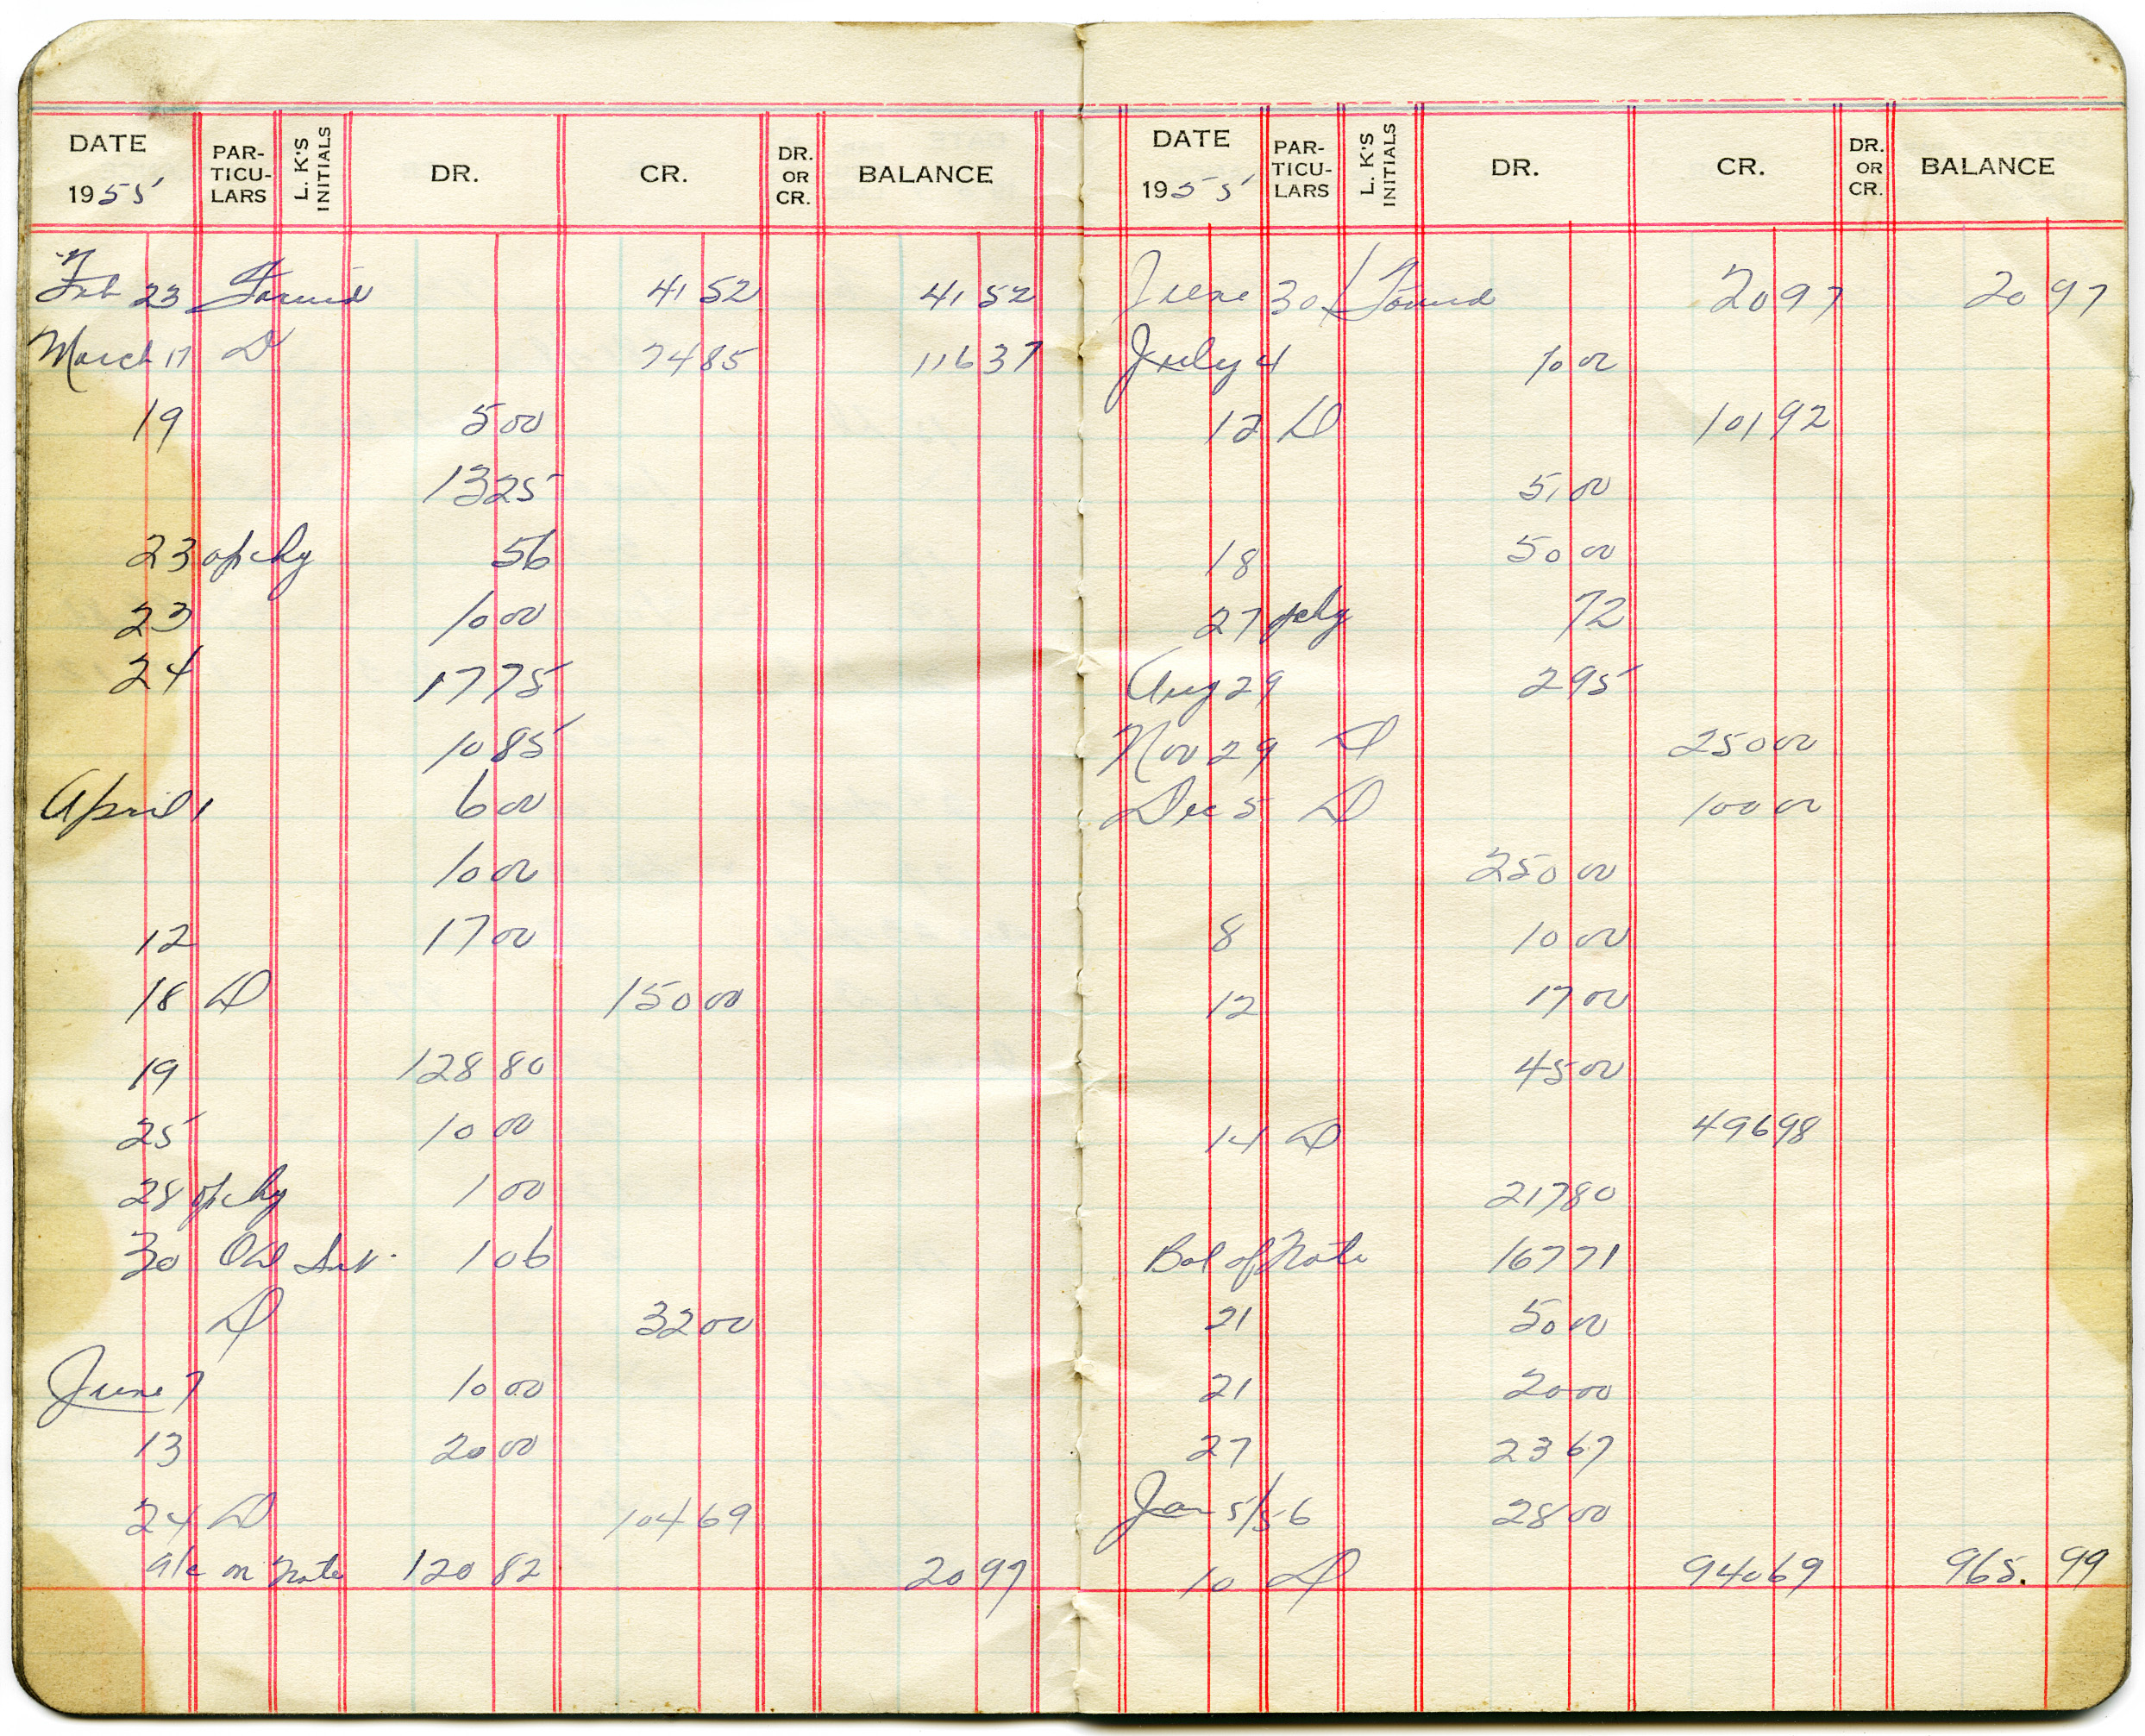 DATE 1955 PAR-TICU-LARS L. K'S INITIALS DR. CR. DR. OR CR. BALANCE
Feb 23 Forwd 41 52 41 52
March 17 D 74 85 116 37
19 5 00
13 25
23 op chg 56
23 10 00
24 17 75
10 85
April 1 6 00
10 00
12 17 00
18 D 150 00
19 128 80
25 10 00
28 op chg 1 00
30 OD Int. 1 06
D 32 00
June 7 10 00
13 20 00
24 D 104 69
a/c on Note 120 82 20 97
DATE 1955 PAR-TICU-LARS L. K'S INITIALS DR. CR. DR. OR CR. BALANCE
June 30 Forwd 20 97 20 97
July 4 10 00
12 D 101 92
5 00
18 50 00
27 chg 72
Aug 29 2 95
Nov 29 D 250 00
Dec 5 D 100 00
250 00
8 10 00
12 17 00
45 00
14 D 496 98
217 80
Bal of Note 167 71
21 50 00
21 20 00
27 23 67
Jan 5/56 28 00
10 D 940 69 965. 99